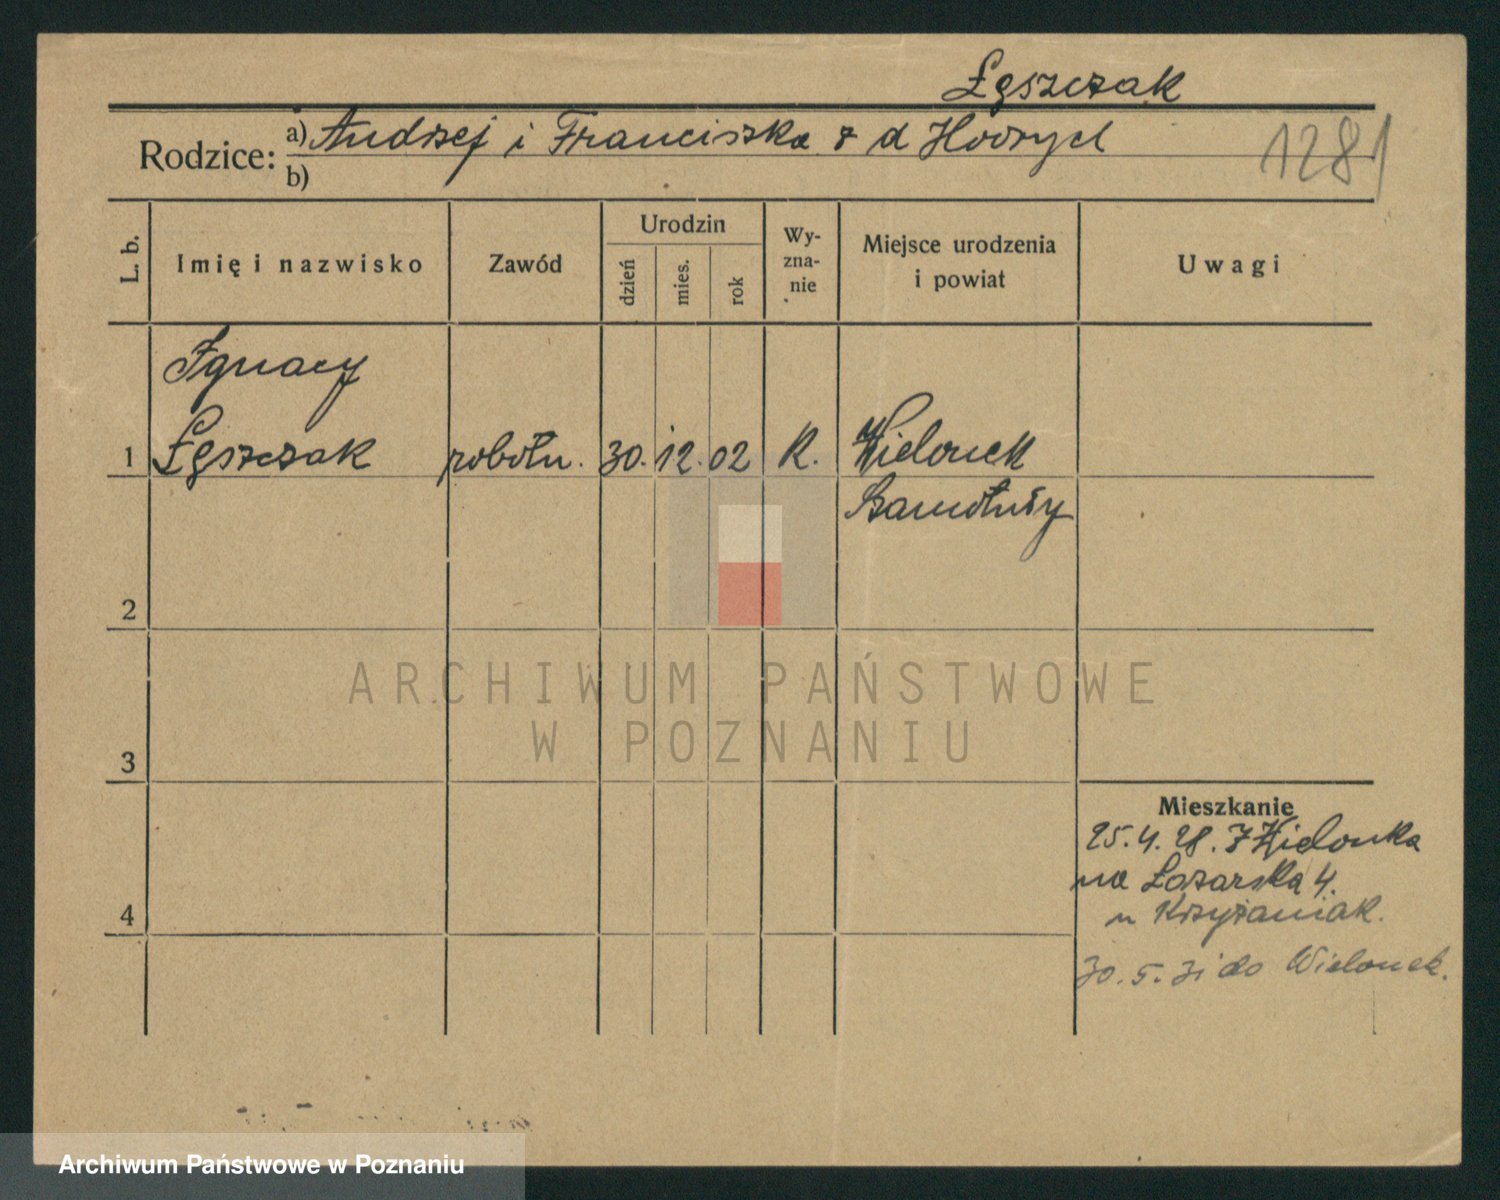 Łęszczak
Rodzice: a) Andrzej i Franciszka z d
b)
1281
L. b. Imię i nazwisko Zawód Urodzin dzień mies. rok Wyznanie Miejsce urodzenia i powiat Uwagi
Ignacy
1 Łęszczak robotn. 30. 12. 02 R. Wielonek
Szamotuły
2
3
4
Mieszkanie
25.4.28. z Wielonka
na Łazarska 4.
u Krzyżaniak.
30.5.31 do Wielonek.
ARCHIWUM PAŃSTWOWE
W POZNANIU
Archiwum Państwowe w Poznaniu